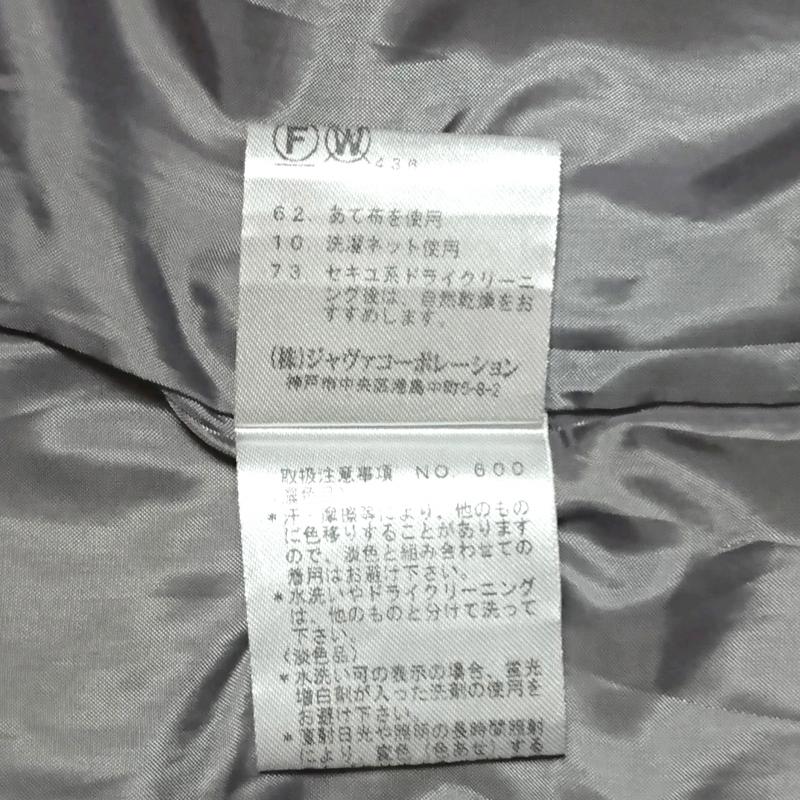 F W
438
62. あて布を使用
10 洗濯ネット使用
73 セキユ系ドライクリーニ
ング後は、自然乾燥をお
すすめします。
(株)ジャヴァコーポレーション
神戸市中央区港島中町6-8-2
取扱注意事項 NO. 600
*汗・摩擦等により、他のもの
に色移りすることがあります
ので、淡色と組み合わせての
着用はお避け下さい。
*水洗いやドライクリーニング
は、他のものと分けて洗って
下さい。
(淡色品)
*水洗い可の表示の場合、蛍光
増白剤が入った洗剤の使用を
お避け下さい。
*直射日光や照明の長時間照射
により、変色(色あせ)する